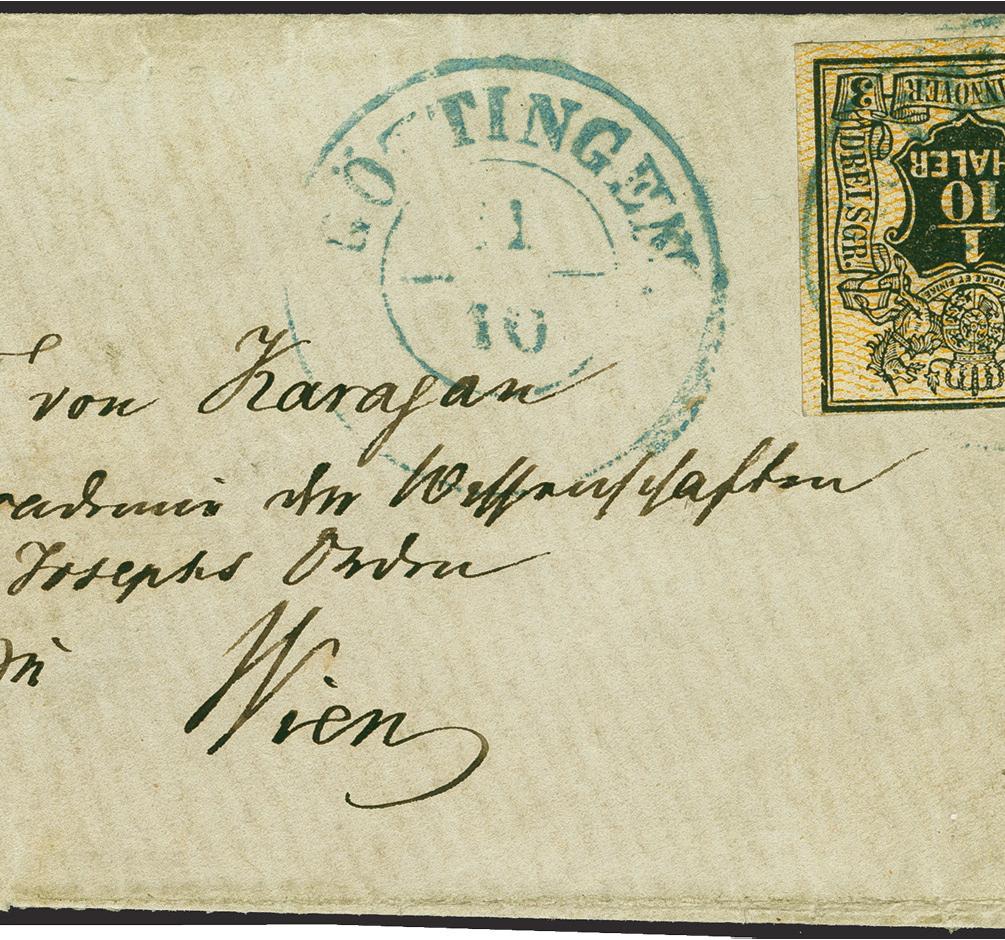 GÖTTINGEN
11
10
3 HANNOVER
DREI SGR.
1
10
THALER
von Karajan
academie der Wissenschaften
Josephs Orden
zu Wien